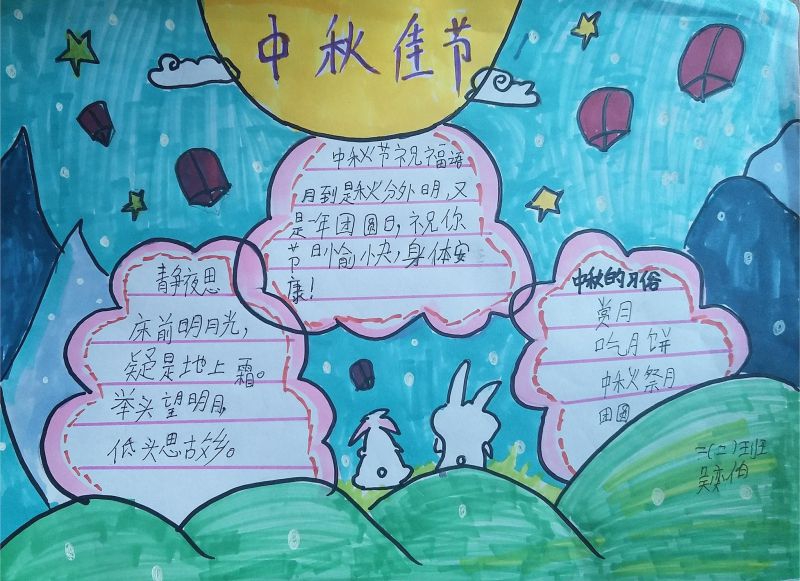 中秋佳节
中秋节祝福语
月到是秋分外明,又
是一年团圆日,祝你
节日愉快,身体安
康!
静夜思
床前明月光,
疑是地上霜。
举头望明月,
低头思故乡。
中秋的习俗
赏月
吃月饼
中秋祭月
团圆
二(二)班